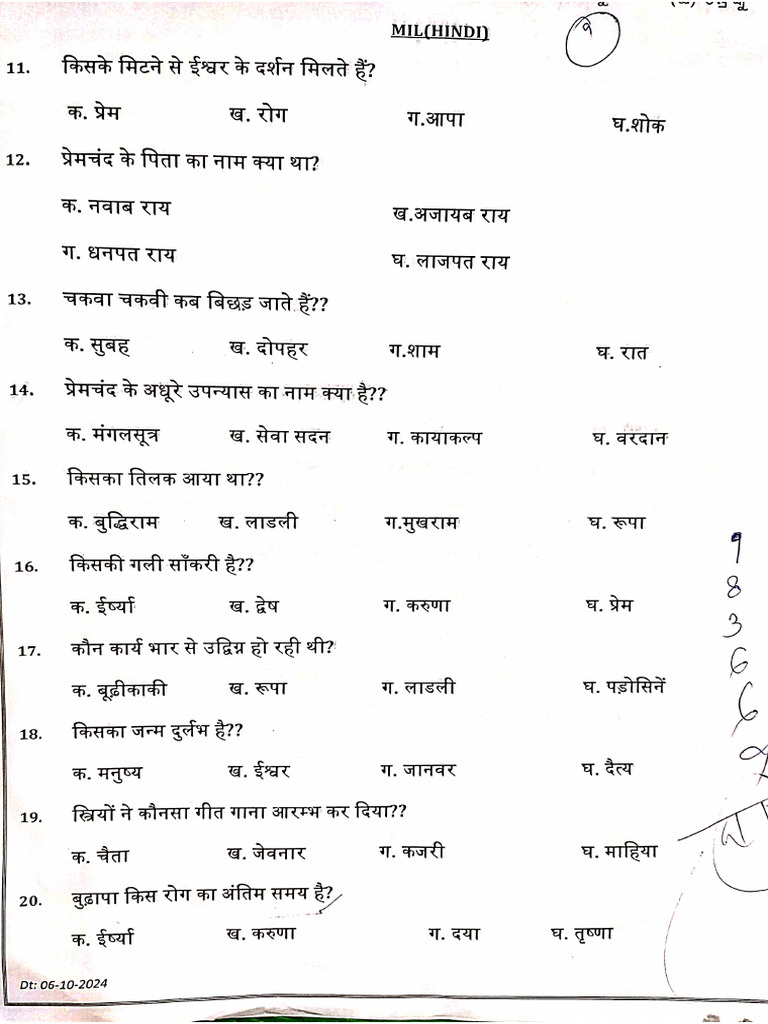 MIL(HINDI)
११
11. किसके मिटने से ईश्वर के दर्शन मिलते हैं?
क. प्रेम ख. रोग ग.आपा घ.शोक
12. प्रेमचंद के पिता का नाम क्या था?
क. नवाब राय ख.अजायब राय
ग. धनपत राय घ. लाजपत राय
13. चकवा चकवी कब बिछड़ जाते हैं??
क. सुबह ख. दोपहर ग.शाम घ. रात
14. प्रेमचंद के अधूरे उपन्यास का नाम क्या है??
क. मंगलसूत्र ख. सेवा सदन ग. कायाकल्प घ. वरदान
15. किसका तिलक आया था??
क. बुद्धिराम ख. लाडली ग.मुखराम घ. रूपा
16. किसकी गली साँकरी है??
क. ईर्ष्या ख. द्वेष ग. करुणा घ. प्रेम
17. कौन कार्य भार से उद्विग्न हो रही थी?
क. बूढ़ीकाकी ख. रूपा ग. लाडली घ. पड़ोसिनें
18. किसका जन्म दुर्लभ है??
क. मनुष्य ख. ईश्वर ग. जानवर घ. दैत्य
19. स्त्रियों ने कौनसा गीत गाना आरम्भ कर दिया??
क. चैता ख. जेवनार ग. कजरी घ. माहिया
20. बुढ़ापा किस रोग का अंतिम समय है?
क. ईर्ष्या ख. करुणा ग. दया घ. तृष्णा
Dt: 06-10-2024
9
8
3
6
6